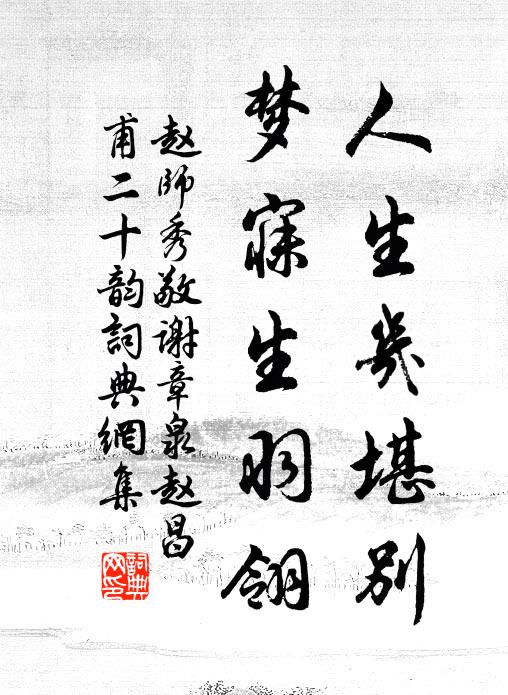 人生几堪别
梦寐生羽翎
赵师秀敬谢章泉赵昌
甫二十韵词典網集
詞典
网印